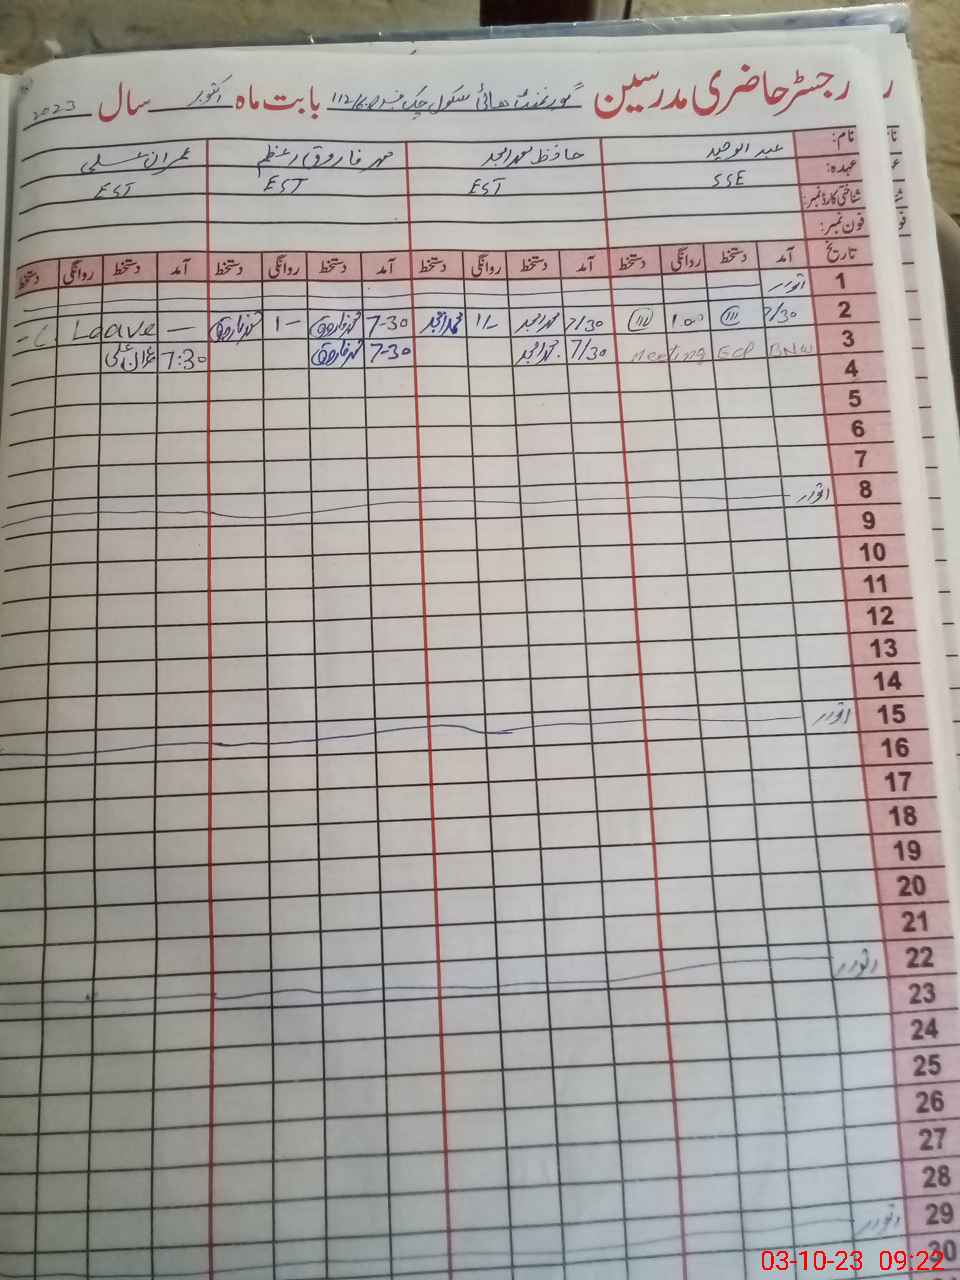 رجسٹر حاضری مدرسین گورنمنٹ ہائی سکول چک نمبر 112/6R بابت ماہ اکتوبر سال 2023
نام: عبد الوحید حافظ محمد امجد مہر فاروق اعظم عمران علی
عہدہ: SSE EST EST EST
شناختی کارڈ نمبر:
فون نمبر:
تاریخ آمد دستخط روانگی دستخط آمد دستخط روانگی دستخط آمد دستخط روانگی دستخط آمد دستخط روانگی دستخط
1 اتوار
2 7/30 1.00 7/30 محمد امجد 1/- محمد امجد 7-30 مہر فاروق 1- مہر فاروق - Leave -
3 Meeting GCP BNW 7/30 محمد امجد 7-30 مہر فاروق 7:30 عمران علی
4
5
6
7
8 اتوار
9
10
11
12
13
14
15 اتوار
16
17
18
19
20
21
22 اتوار
23
24
25
26
27
28
29 اتوار
30
03-10-23 09:22